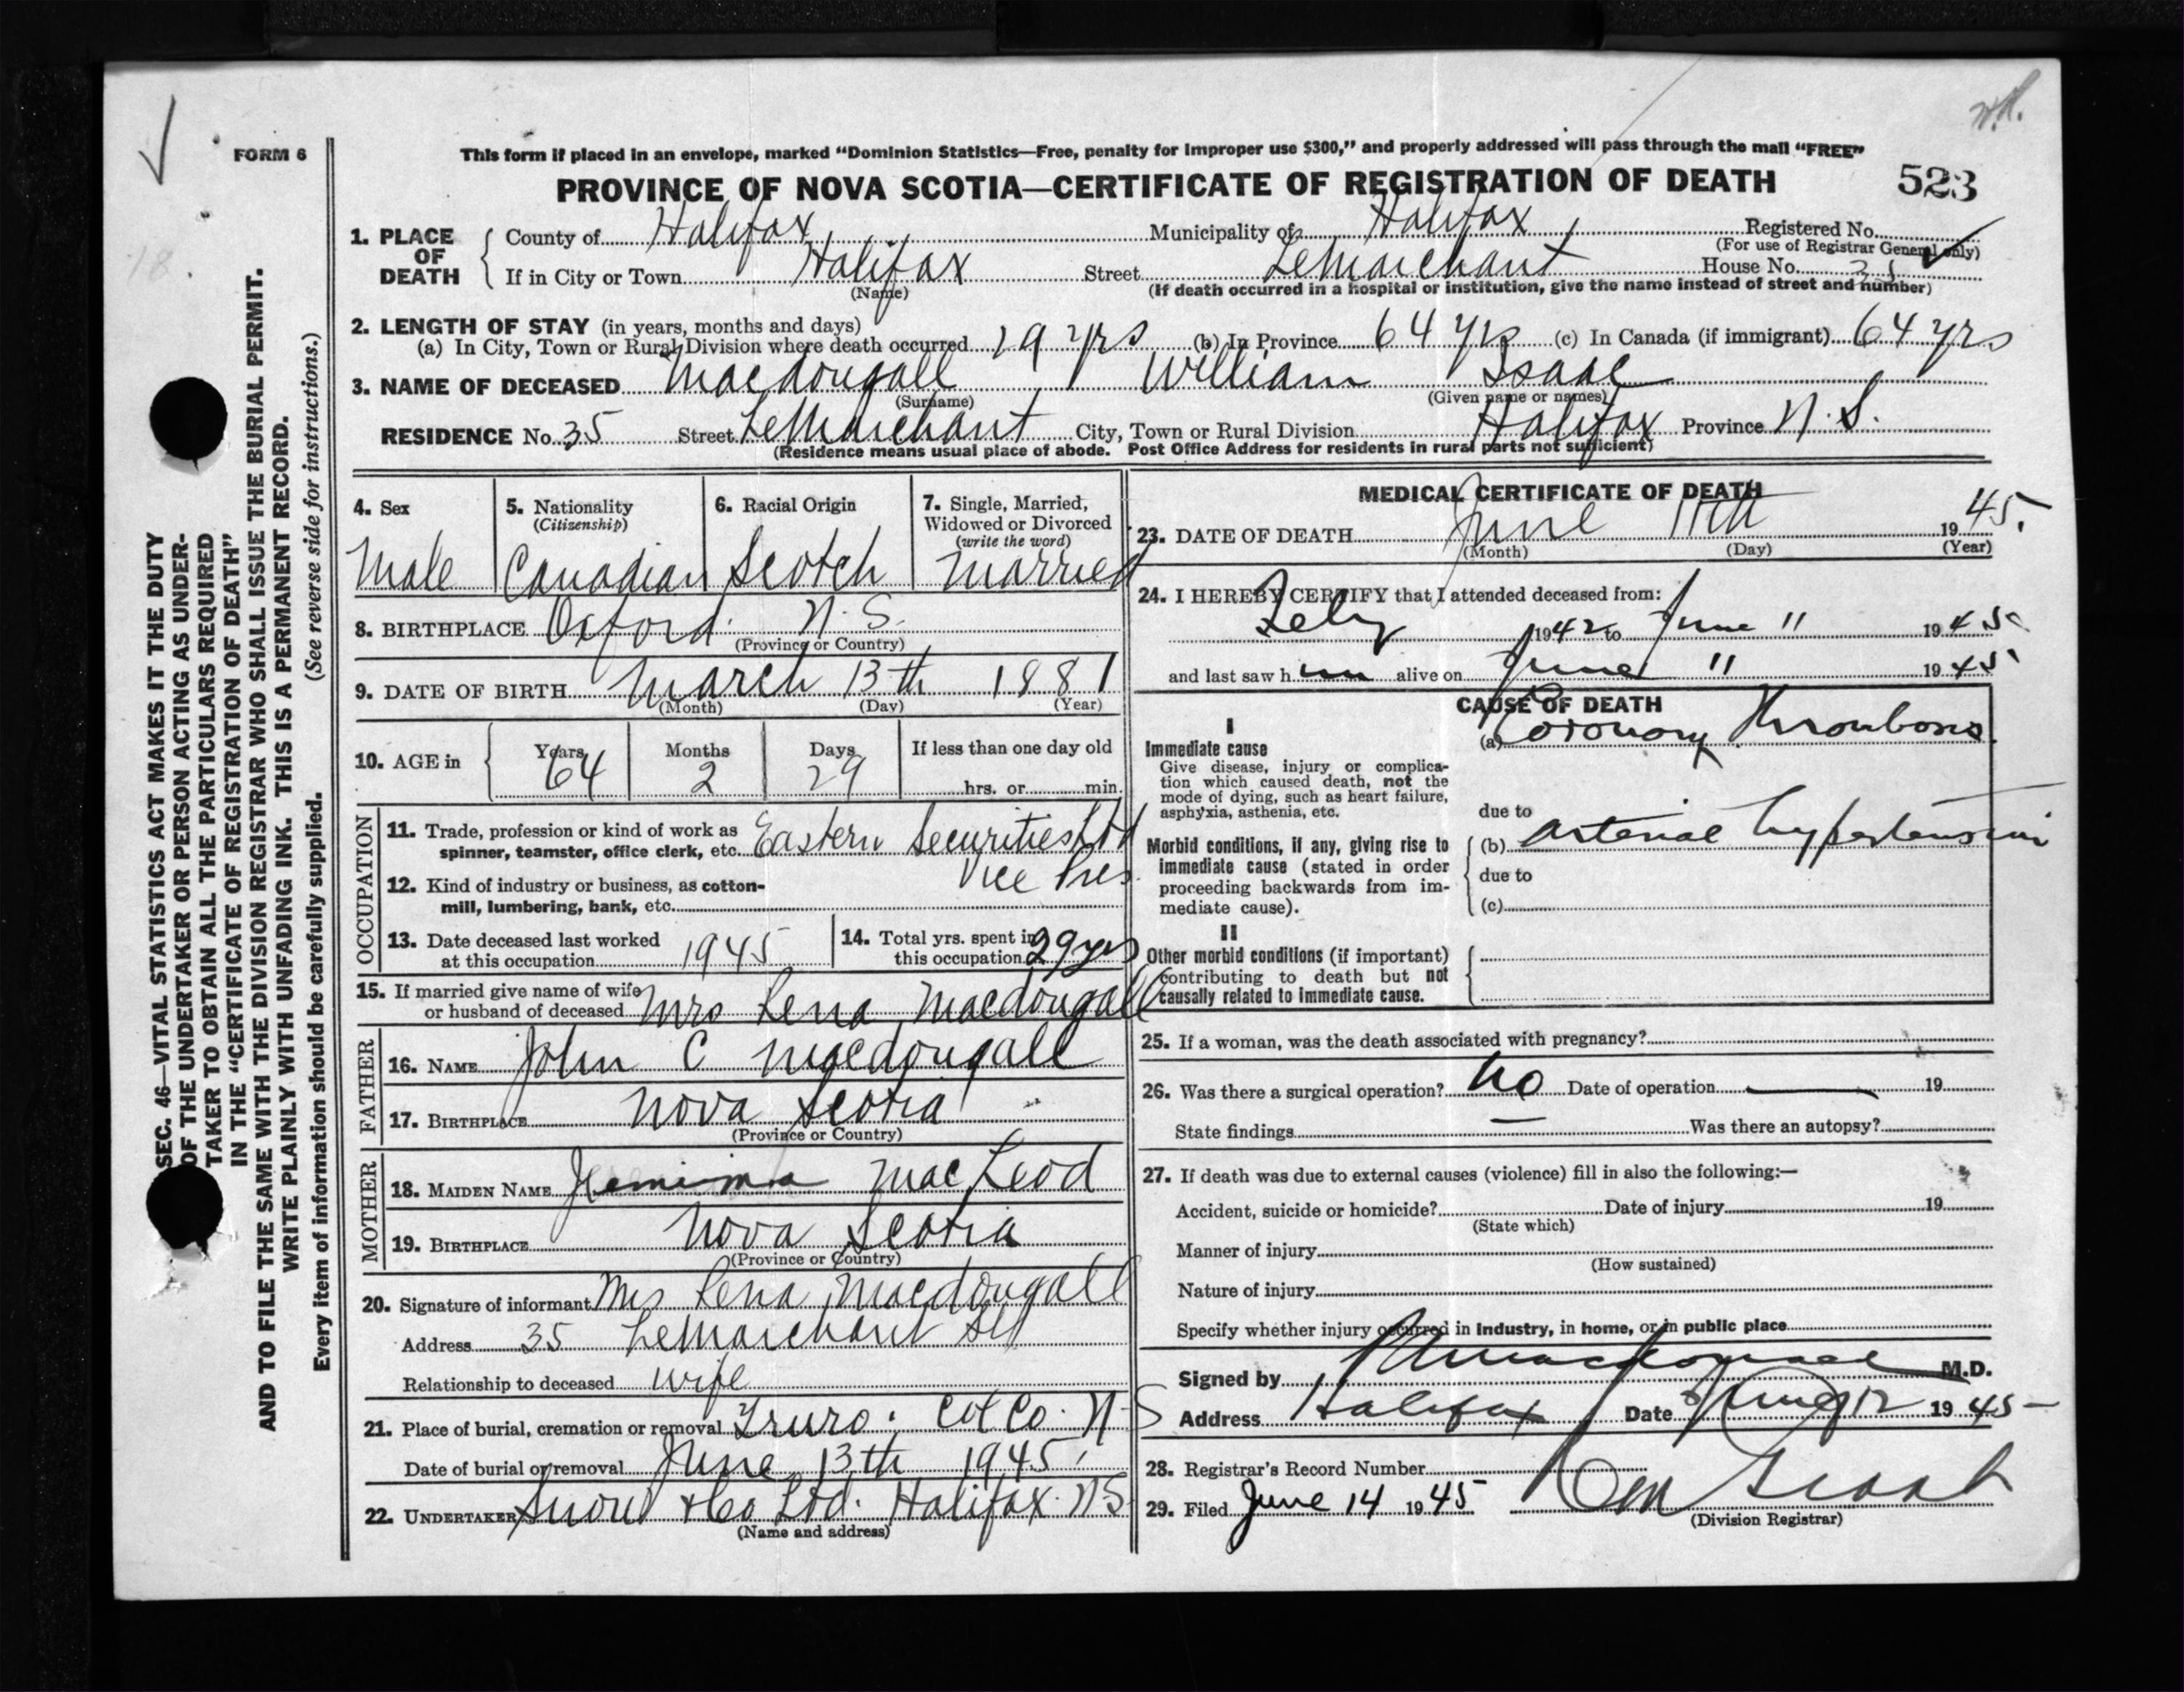 FORM 6
This form if placed in an envelope, marked “Dominion Statistics—Free, penalty for improper use $300,” and properly addressed will pass through the mail “FREE”
PROVINCE OF NOVA SCOTIA—CERTIFICATE OF REGISTRATION OF DEATH 523
1. PLACE OF DEATH
County of Halifax Municipality of Halifax Registered No.
(For use of Registrar General only)
If in City or Town Halifax Street LeMarchant House No. 35
(Name) (If death occurred in a hospital or institution, give the name instead of street and number)
2. LENGTH OF STAY (in years, months and days)
(a) In City, Town or Rural Division where death occurred 19 yrs (b) In Province 64 yrs (c) In Canada (if immigrant) 64 yrs
3. NAME OF DECEASED Macdougall William Isaac
(Surname) (Given name or names)
RESIDENCE No. 35 Street LeMarchant City, Town or Rural Division Halifax Province N.S.
(Residence means usual place of abode. Post Office Address for residents in rural parts not sufficient)
4. Sex
Male
5. Nationality
(Citizenship)
Canadian
6. Racial Origin
Scotch
7. Single, Married,
Widowed or Divorced
(write the word)
Married
8. BIRTHPLACE Oxford. N.S.
(Province or Country)
9. DATE OF BIRTH March 13th 1881
(Month) (Day) (Year)
10. AGE in
Years Months Days If less than one day old
64 2 29 hrs. or min.
OCCUPATION
11. Trade, profession or kind of work as
spinner, teamster, office clerk, etc. Eastern Securities Ltd
12. Kind of industry or business, as cotton- Vice Pres.
mill, lumbering, bank, etc.
13. Date deceased last worked
at this occupation 1945
14. Total yrs. spent in
this occupation 29 yrs
15. If married give name of wife
or husband of deceased Mrs Lena Macdougall
FATHER
16. NAME John C Macdougall
17. BIRTHPLACE Nova Scotia
(Province or Country)
MOTHER
18. MAIDEN NAME Jemima MacLeod
19. BIRTHPLACE Nova Scotia
(Province or Country)
20. Signature of informant Mrs Lena Macdougall
Address 35 LeMarchant St
Relationship to deceased wife
21. Place of burial, cremation or removal Truro. Col Co. N S
Date of burial or removal June 13th 1945
22. UNDERTAKER Snow & Co Ltd. Halifax. N S
(Name and address)
MEDICAL CERTIFICATE OF DEATH
23. DATE OF DEATH June 11th 1945.
(Month) (Day) (Year)
24. I HEREBY CERTIFY that I attended deceased from:
1942 to June 11 1945
and last saw him alive on June 11 1945
CAUSE OF DEATH
I
Immediate cause
Give disease, injury or complica-
tion which caused death, not the
mode of dying, such as heart failure,
asphyxia, asthenia, etc.
(a) Coronary Thrombosis
due to
Morbid conditions, if any, giving rise to
immediate cause (stated in order
proceeding backwards from im-
mediate cause).
(b) arterial hypertension
due to
(c)
II
Other morbid conditions (if important)
contributing to death but not
causally related to immediate cause.
25. If a woman, was the death associated with pregnancy?
26. Was there a surgical operation? No Date of operation 19
State findings Was there an autopsy?
27. If death was due to external causes (violence) fill in also the following:—
Accident, suicide or homicide? Date of injury 19
(State which)
Manner of injury
(How sustained)
Nature of injury
Specify whether injury occurred in industry, in home, or in public place
Signed by M.D.
Address Halifax Date June 12 1945
28. Registrar's Record Number
29. Filed June 14 1945
(Division Registrar)
SEC. 46—VITAL STATISTICS ACT MAKES IT THE DUTY
OF THE UNDERTAKER OR PERSON ACTING AS UNDER-
TAKER TO OBTAIN ALL THE PARTICULARS REQUIRED
IN THE “CERTIFICATE OF REGISTRATION OF DEATH”
AND TO FILE THE SAME WITH THE DIVISION REGISTRAR WHO SHALL ISSUE THE BURIAL PERMIT.
WRITE PLAINLY WITH UNFADING INK. THIS IS A PERMANENT RECORD.
Every item of information should be carefully supplied. (See reverse side for instructions.)